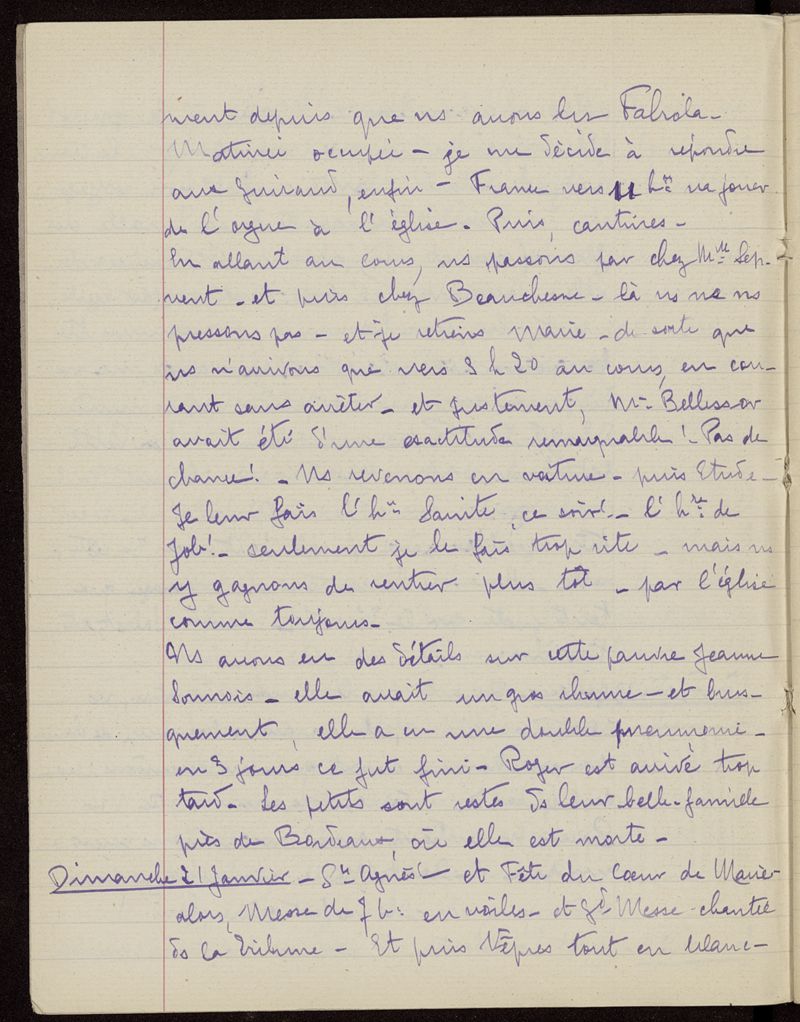 ment depuis que ns avons lu Fabiola -
Matinée occupée - je me décide à répondre
aux Guiraud, enfin - France vers 11 hres va jouer
de l'orgue à l'église. Puis, cantines -
En allant au cours, ns passons par chez Mlle Sep-
vent - et puis chez Beauchesne - là ns ne ns
pressons pas - et je retiens Marie - de sorte que
ns n'arrivons que vers 3 h 20 au cours, en cou-
rant sans arrêter - et justement, Mr Bellessor
avait été d'une exactitude remarquable ! Pas de
chance ! - Ns revenons en voiture - puis Etude -
Je leur fais l'hre Sainte, ce soir ! - l'hre de
Job ! - seulement je le fais trop vite - mais ns
y gagnons de rentrer plus tôt - par l'église
comme toujours -
Ns avons eu des détails sur cette pauvre Jeanne
Sonnois - elle avait un gros rhume - et brus-
quement, elle a eu une double pneumonie -
en 3 jours ce fut fini - Roger est arrivé trop
tard - Les petits sont restés ds leur belle-famille
près de Bordeaux, où elle est morte -
Dimanche 21 Janvier - Ste Agnès ! et Fête du Cœur de Marie -
alors, Messe de 7 h. en voiles - et Gd Messe chantée
ds la tribune - Et puis Vêpres tout en blanc -